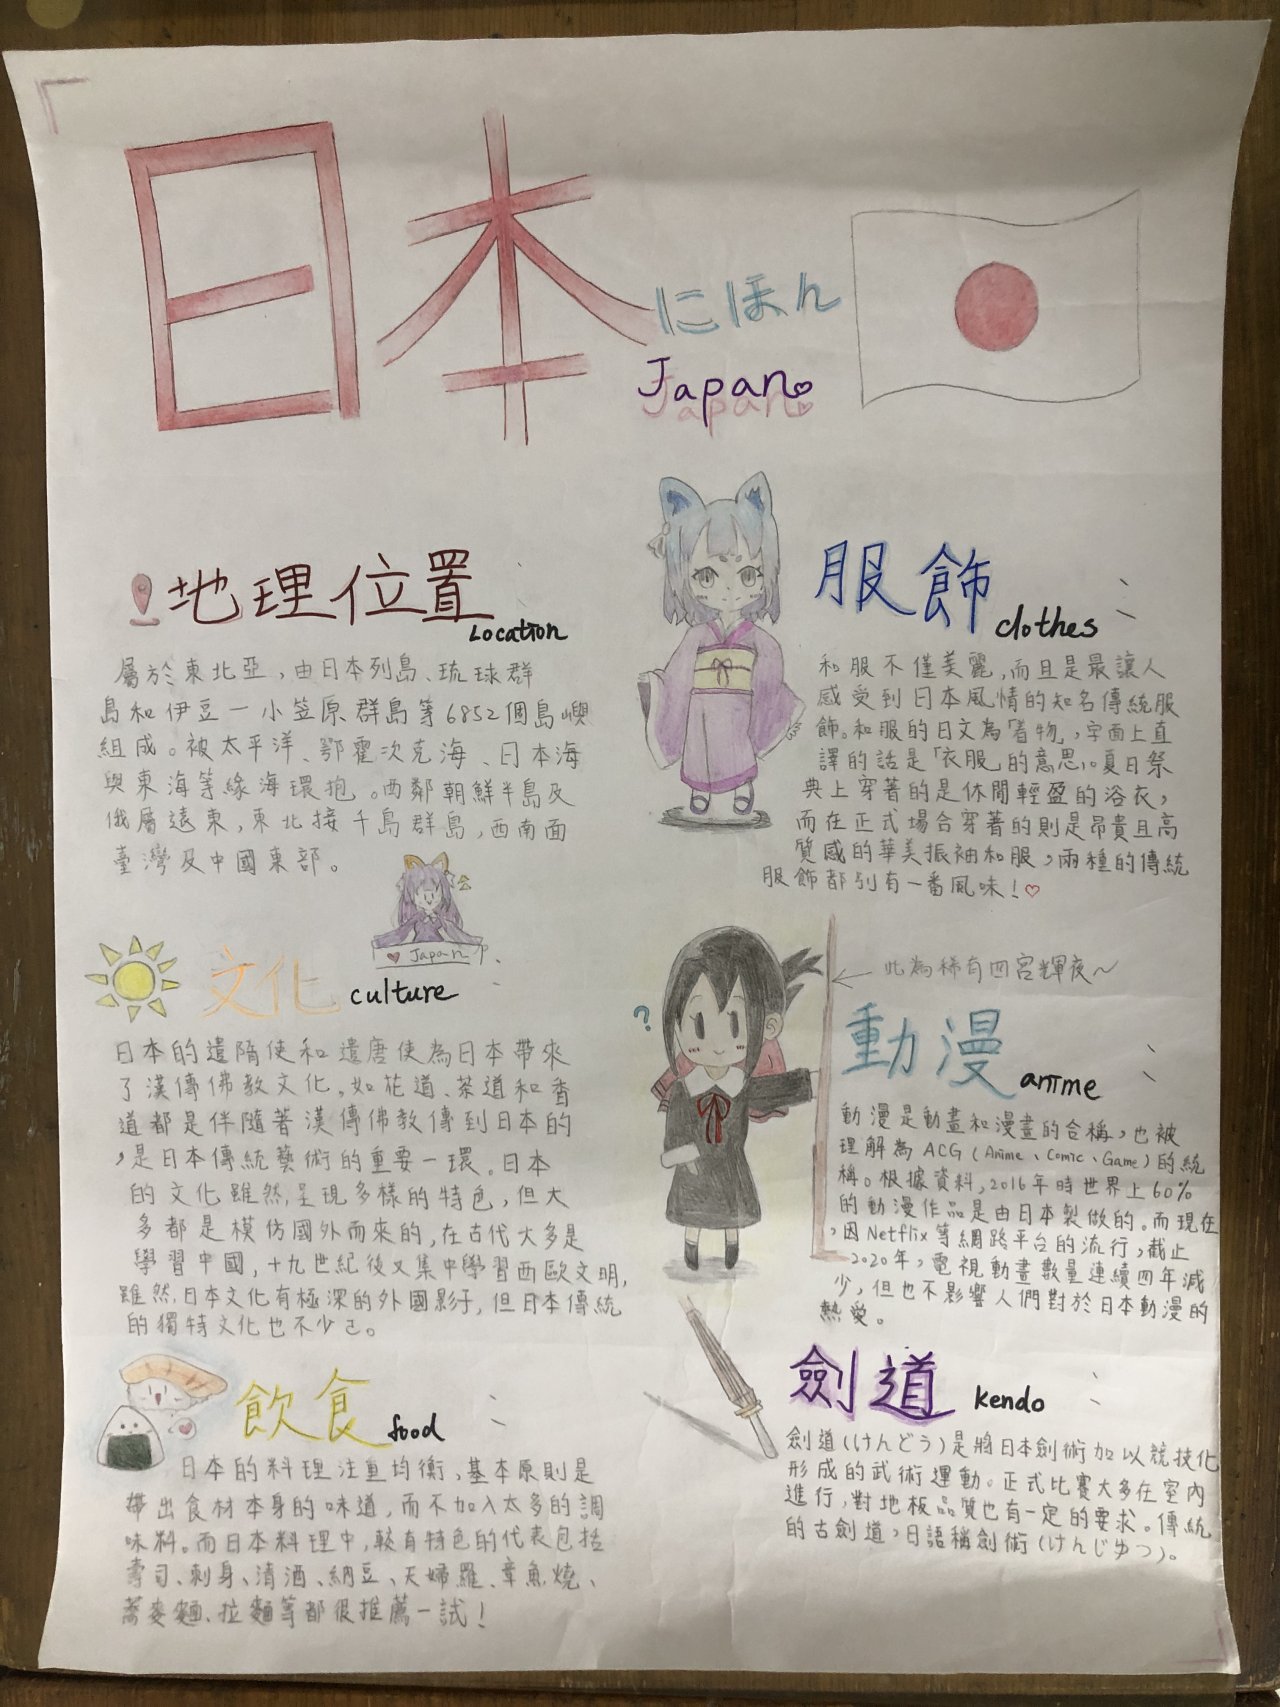 日本
にほん
Japan
地理位置
Location
屬於東北亞,由日本列島、琉球群
島和伊豆一小笠原群島等6852個島嶼
組成。被太平洋、鄂霍次克海、日本海
與東海等緣海環抱。西鄰朝鮮半島及
俄屬遠東,東北接千島群島,西南面
臺灣及中國東部。
Japan
文化
culture
日本的遣隋使和遣唐使為日本帶來
了漢傳佛教文化。如花道、茶道和香
道都是伴隨著漢傳佛教傳到日本的
,是日本傳統藝術的重要一環。日本
的文化雖然呈現多樣的特色,但大
多都是模仿國外而來的,在古代大多是
學習中國,十九世紀後又集中學習西歐文明,
雖然日本文化有極深的外國影子,但日本傳統
的獨特文化也不少己。
飲食
food
日本的料理注重均衡,基本原則是
帶出食材本身的味道,而不加入太多的調
味料。而日本料理中,較有特色的代表包括
壽司、刺身、清酒、納豆、天婦羅、章魚燒、
蕎麥麵、拉麵等都很推薦一試!
服飾
clothes
和服不僅美麗,而且是最讓人
感受到日本風情的知名傳統服
飾。和服的日文為「着物」,字面上直
譯的話是「衣服」的意思。夏日祭
典上穿著的是休閒輕盈的浴衣,
而在正式場合穿著的則是昂貴且高
質感的華美振袖和服,兩種的傳統
服飾都別有一番風味!
?
此為稀有四宮輝夜~
動漫
anime
動漫是動畫和漫畫的合稱,也被
理解為ACG(Anime、Comic、Game)的統
稱。根據資料,2016年時世界上60%
的動漫作品是由日本製做的。而現在
,因Netflix等網路平台的流行,截止
2020年,電視動畫數量連續四年減
少,但也不影響人們對於日本動漫的
熱愛。
劍道
kendo
劍道(けんどう)是將日本劍術加以競技化
形成的武術運動。正式比賽大多在室內
進行,對地板品質也有一定的要求。傳統
的古劍道,日語稱劍術(けんじゆつ)。